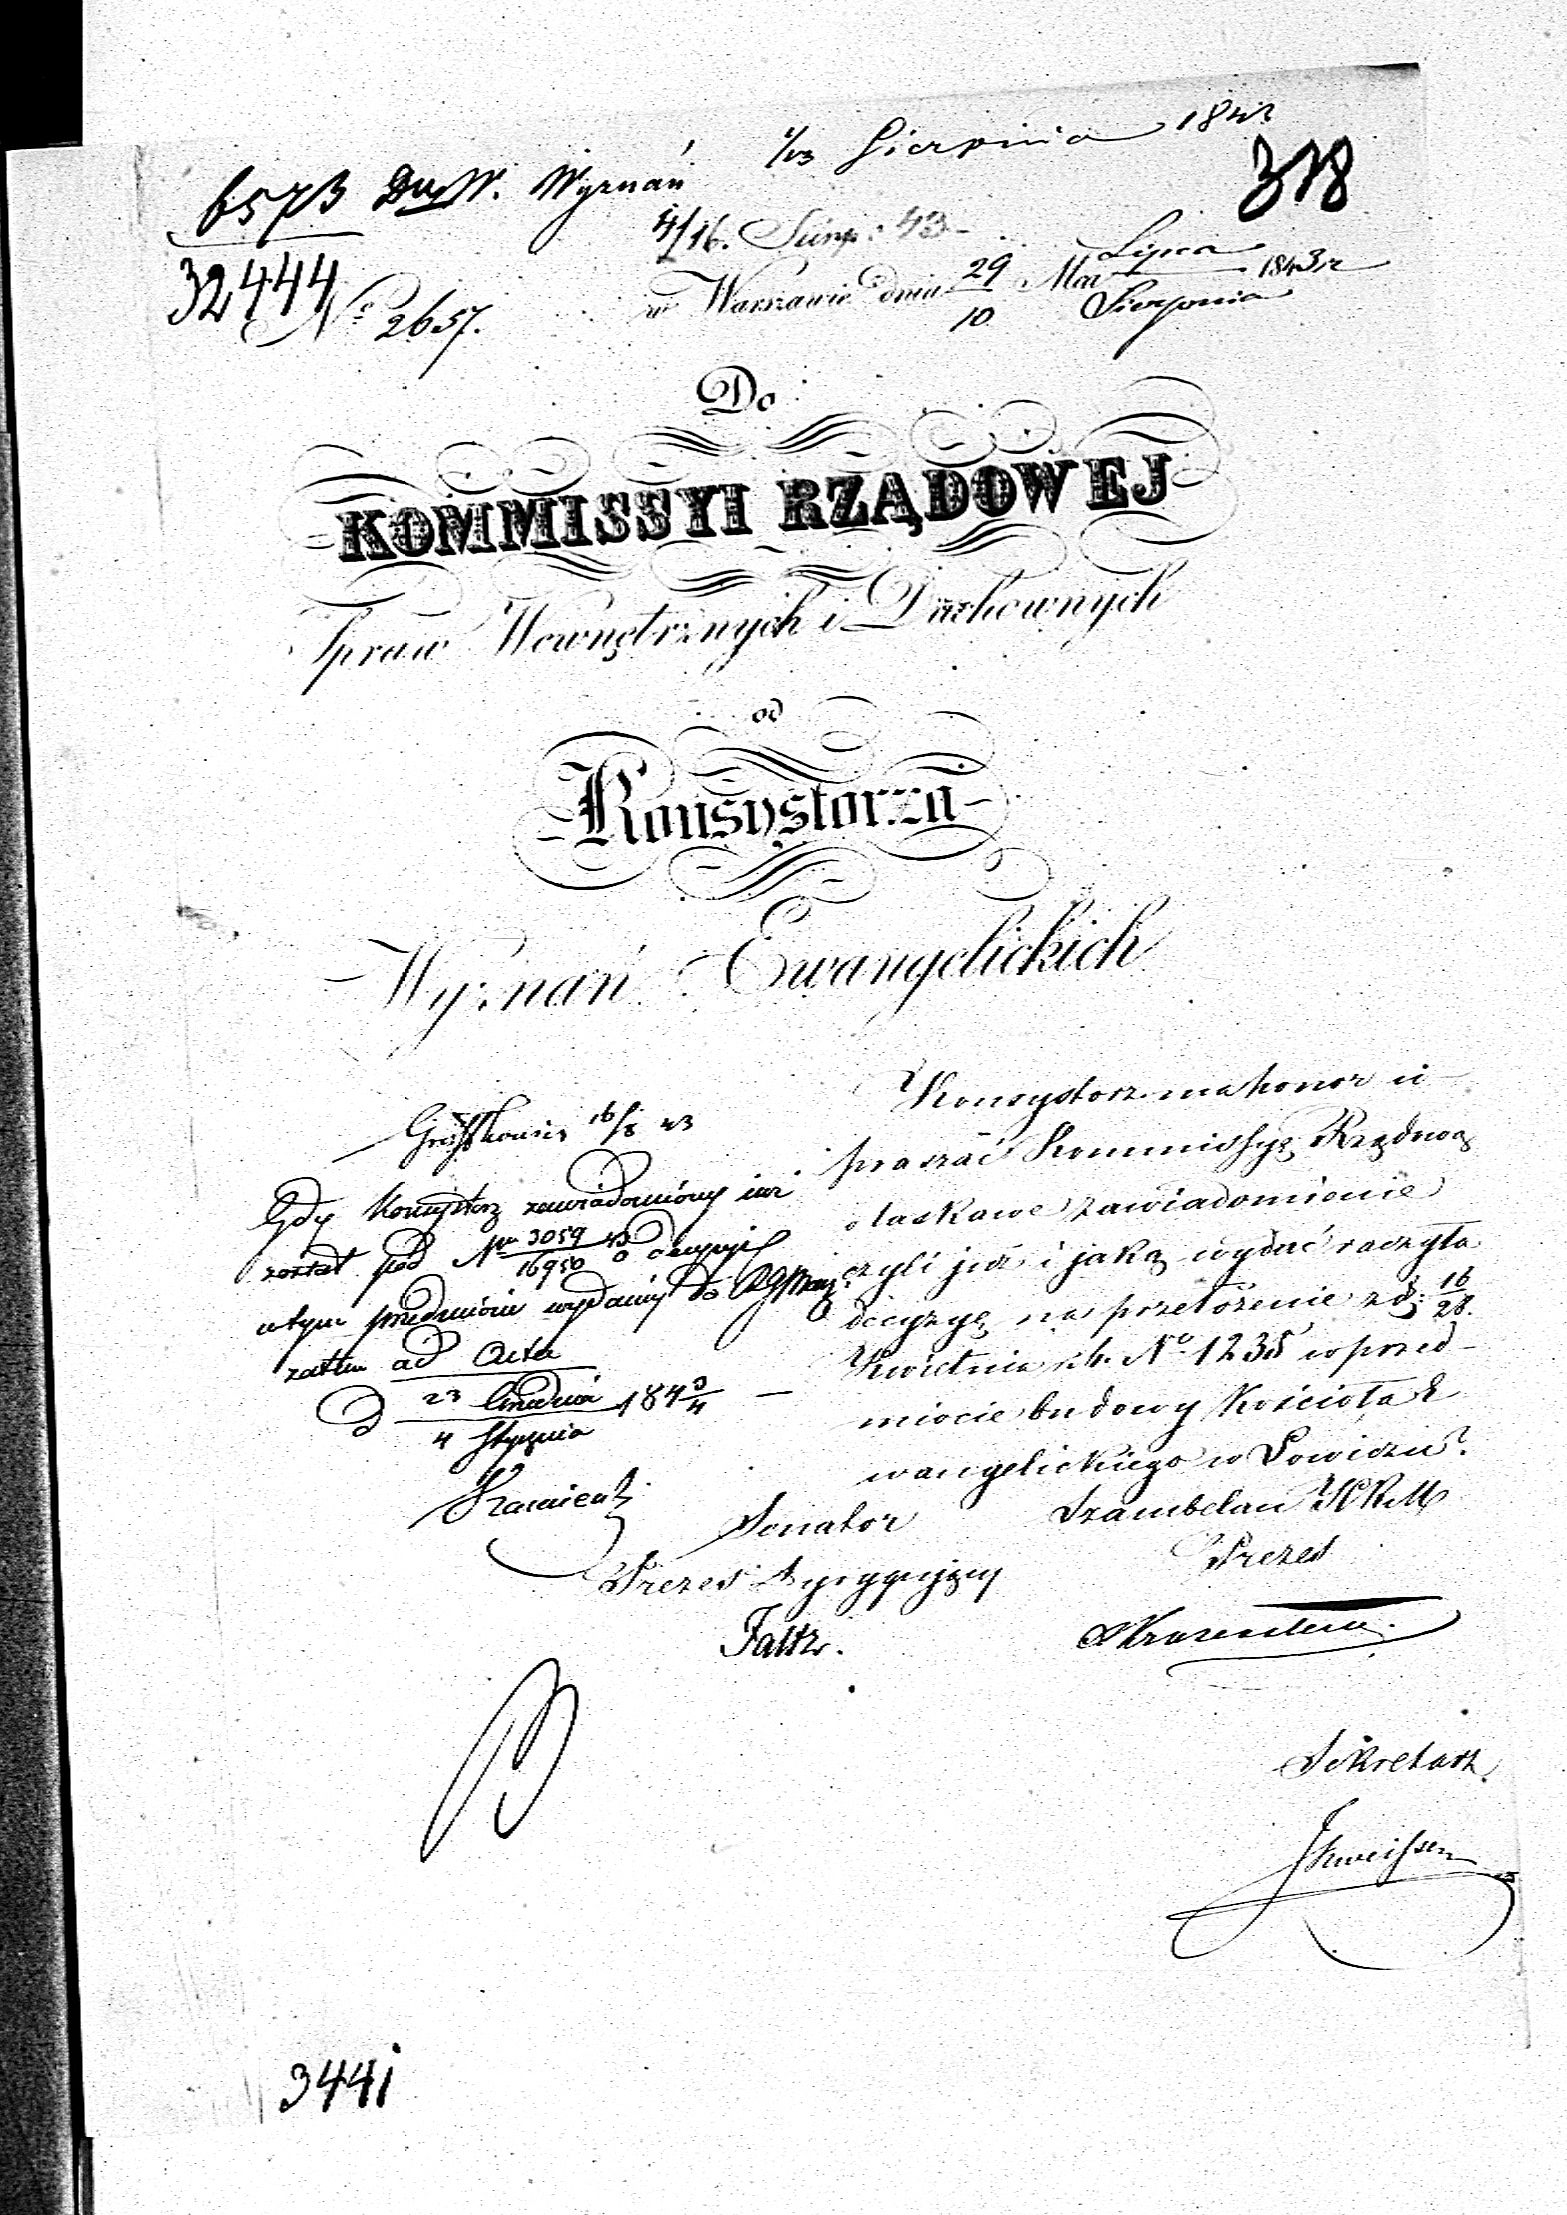 1/13 Sierpnia 1843
318
6573 Dny W. Wyznań
4/16. Sierp: 43
32444
No 2657.
w Warszawie dnia 29/10 Mca Lipca/Sierpnia 1843 r
Do
KOMMISSYI RZĄDOWEJ
Spraw Wewnętrznych i Duchownych
od
Konsystorza
Wyznań Ewangelickich
Konsystorz ma honor u-
praszać Kommissyę Rządową
o łaskawe zawiadomienie
czyli już i jaką wydać raczyła
decyzyę na przełożenie z d: 16/28.
Kwietnia r.b. No 1235 w przed-
miocie budowy Kościoła E-
wangelickiego w Łowiczu.
16/8 43
Gdy Konsystorz zawiadomiony już
został pod Nrm 3059/16950 43 o decyzyi
w tym przedmiocie wydanej do
zatem ad Acta
d 23 Grudnia/4 Stycznia 1843/4
Senator
Prezes Dyrygujący
Faltz.
Szambelan JKRM
Prezes
Sekretarz
3441